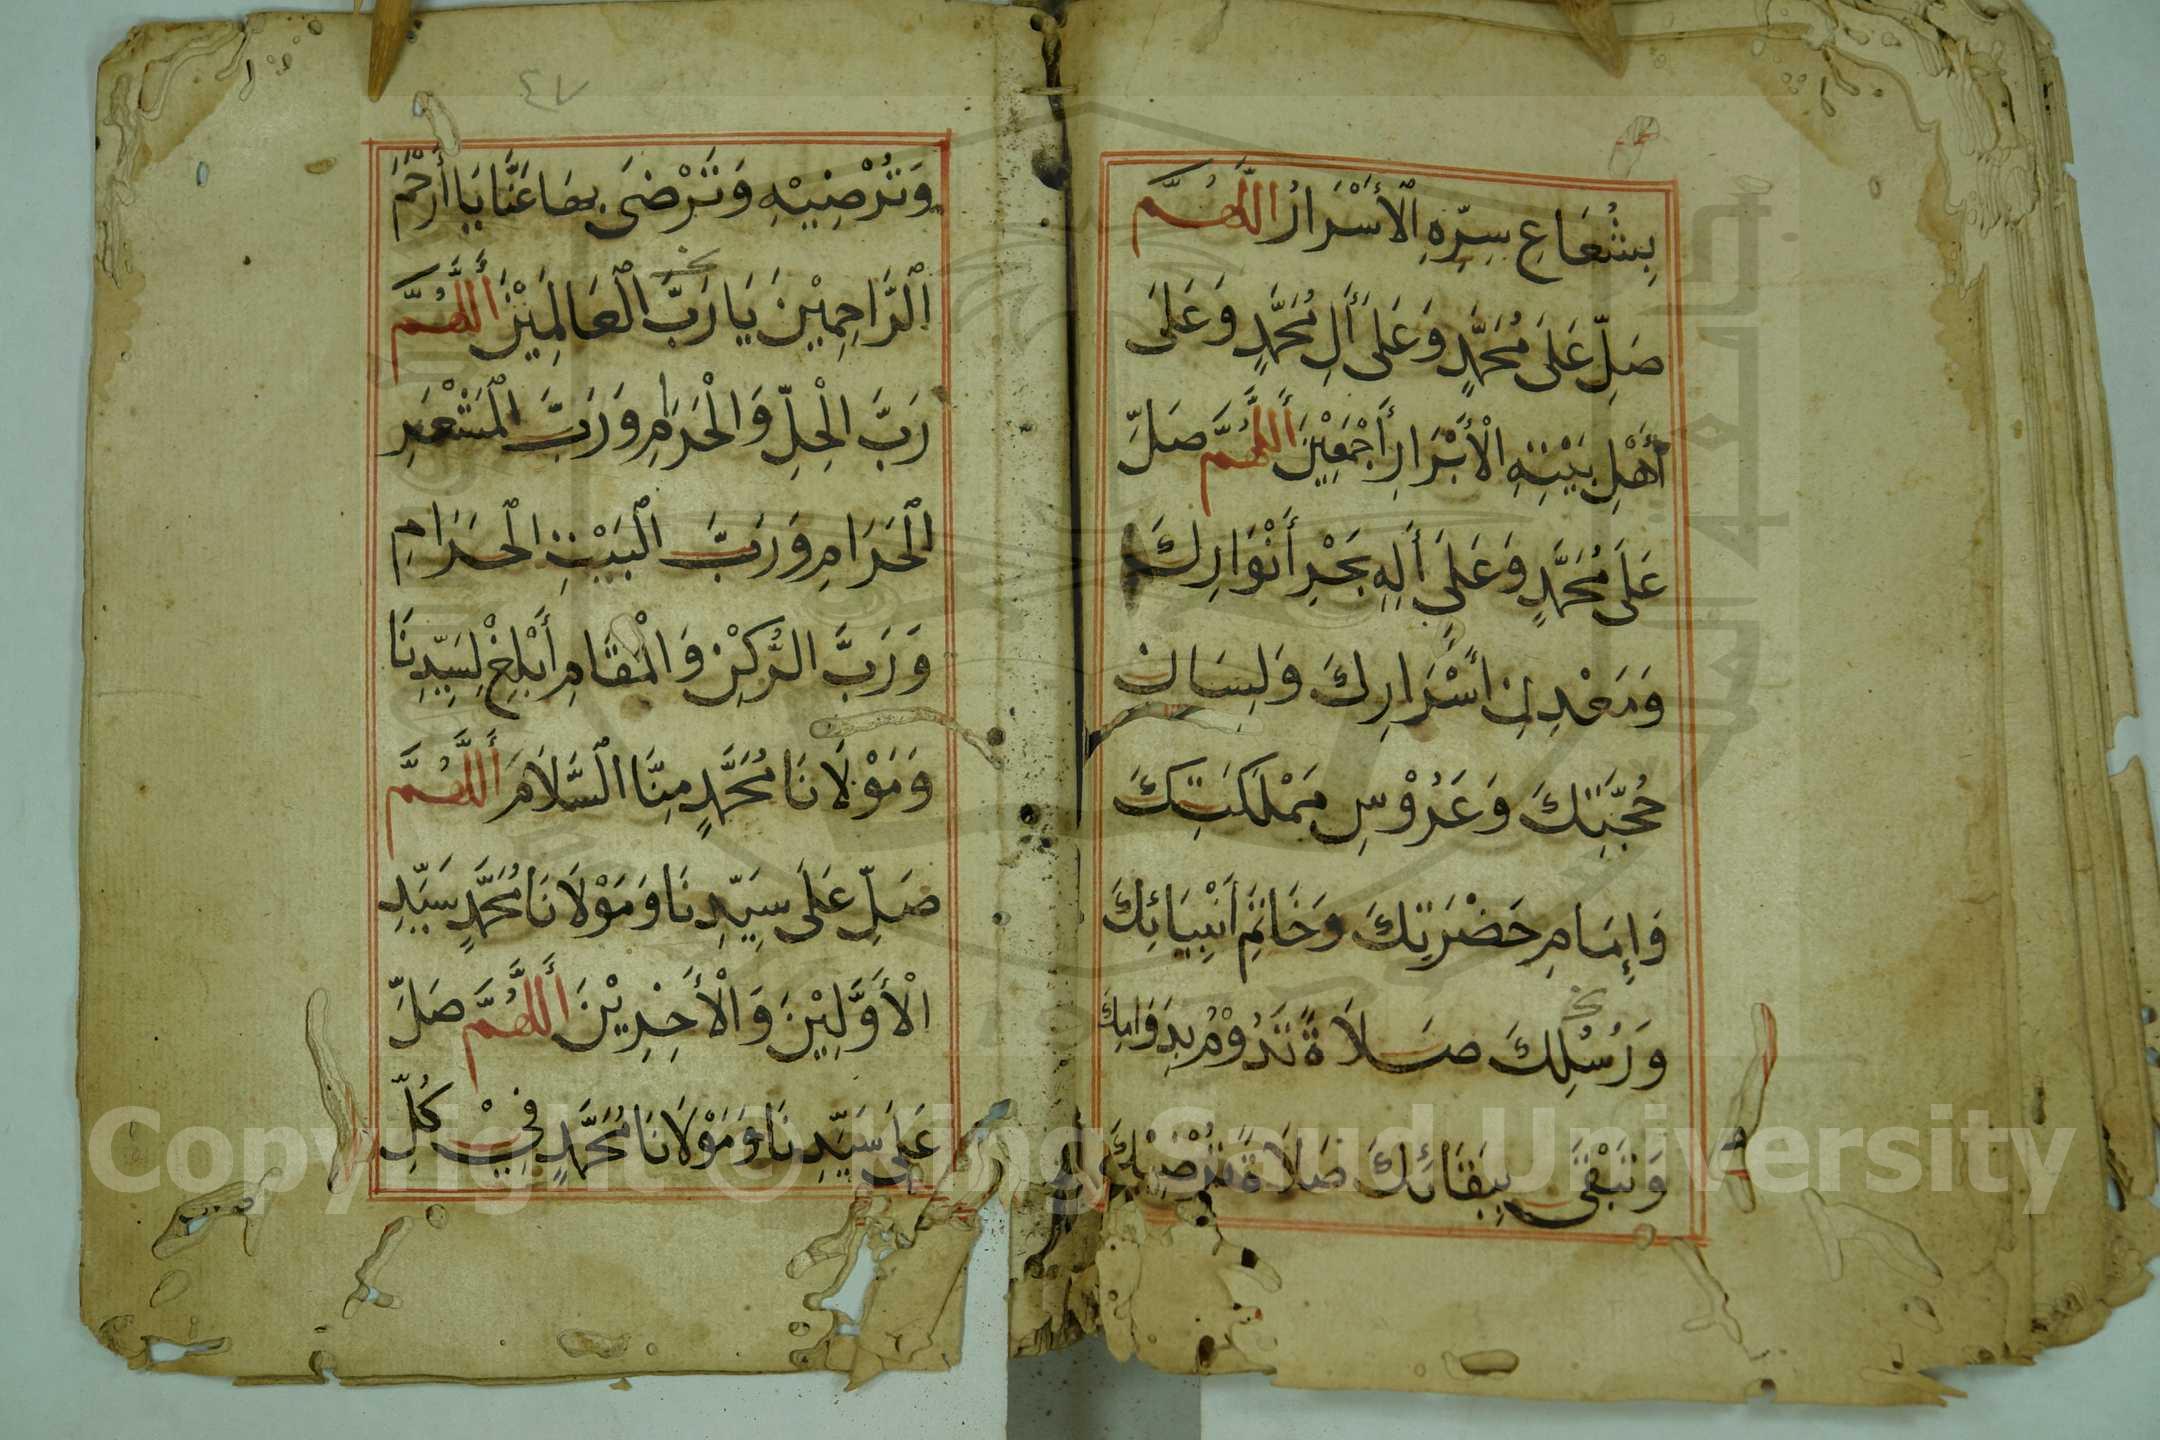 بِشُعَاعِ سِرِّهِ الْأَسْرَارُ اللَّهُمَّ
صَلِّ عَلَى مُحَمَّدٍ وَعَلَى أَلِ مُحَمَّدٍ وَعَلَى
أَهْلِ بَيْتِهِ الْأَبْرَارِ أَجْمَعِيْنَ أَللَّهُمَّ صَلِّ
عَلَى مُحَمَّدٍ وَعَلَى أَلِهِ بَحْرِ أَنْوَارِكَ
وَمَعْدِنِ أَسْرَارِكَ وَلِسَانِ
حُجَّتِكَ وَعَرُوْسِ مَمْلَكَتِكَ
وَإِمَامِ حَضْرَتِكَ وَخَاتَمِ أَنْبِيَائِكَ
وَرُسُلِكَ صَلَاةً تَدُوْمُ بِدَوَامِكَ
وَتَبْقَى بِبَقَائِكَ صَلَاةً تُرْضِيْكَ
٤٧
وَتُرْضِيْهِ وَتَرْضَى بِهَا عَنَّا يَا أَرْحَمَ
الرَّاحِمِيْنَ يَا رَبَّ الْعَالَمِيْنَ أَللَّهُمَّ
رَبَّ الْحِلِّ وَالْحَرَامِ وَرَبَّ الْمَشْعَرِ
الْحَرَامِ وَرَبَّ الْبَيْتِ الْحَرَامِ
وَرَبَّ الرُّكْنِ وَالْمَقَامِ أَبْلِغْ لِسَيِّدِنَا
وَمَوْلَانَا مُحَمَّدٍ مِنَّا السَّلَامَ أَللَّهُمَّ
صَلِّ عَلَى سَيِّدِنَا وَمَوْلَانَا مُحَمَّدٍ سَيِّدِ
الْأَوَّلِيْنَ وَالْأَخِرِيْنَ أَللَّهُمَّ صَلِّ
عَلَى سَيِّدِنَا وَمَوْلَانَا مُحَمَّدٍ فِيْ كُلِّ
Copyright © King Saud University